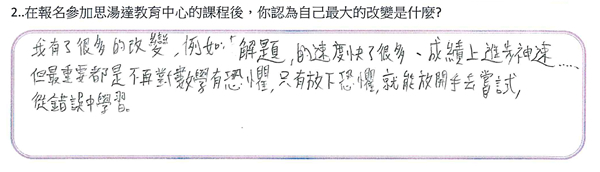 2..在報名參加思湯達教育中心的課程後，你認為自己最大的改變是什麼?
我有了很多的改變，例如：「解題」的速度快了很多、成績上進步神速……
但最重要都是不再對數學有恐懼，只有放下恐懼，就能放開手去嘗試，
從錯誤中學習。